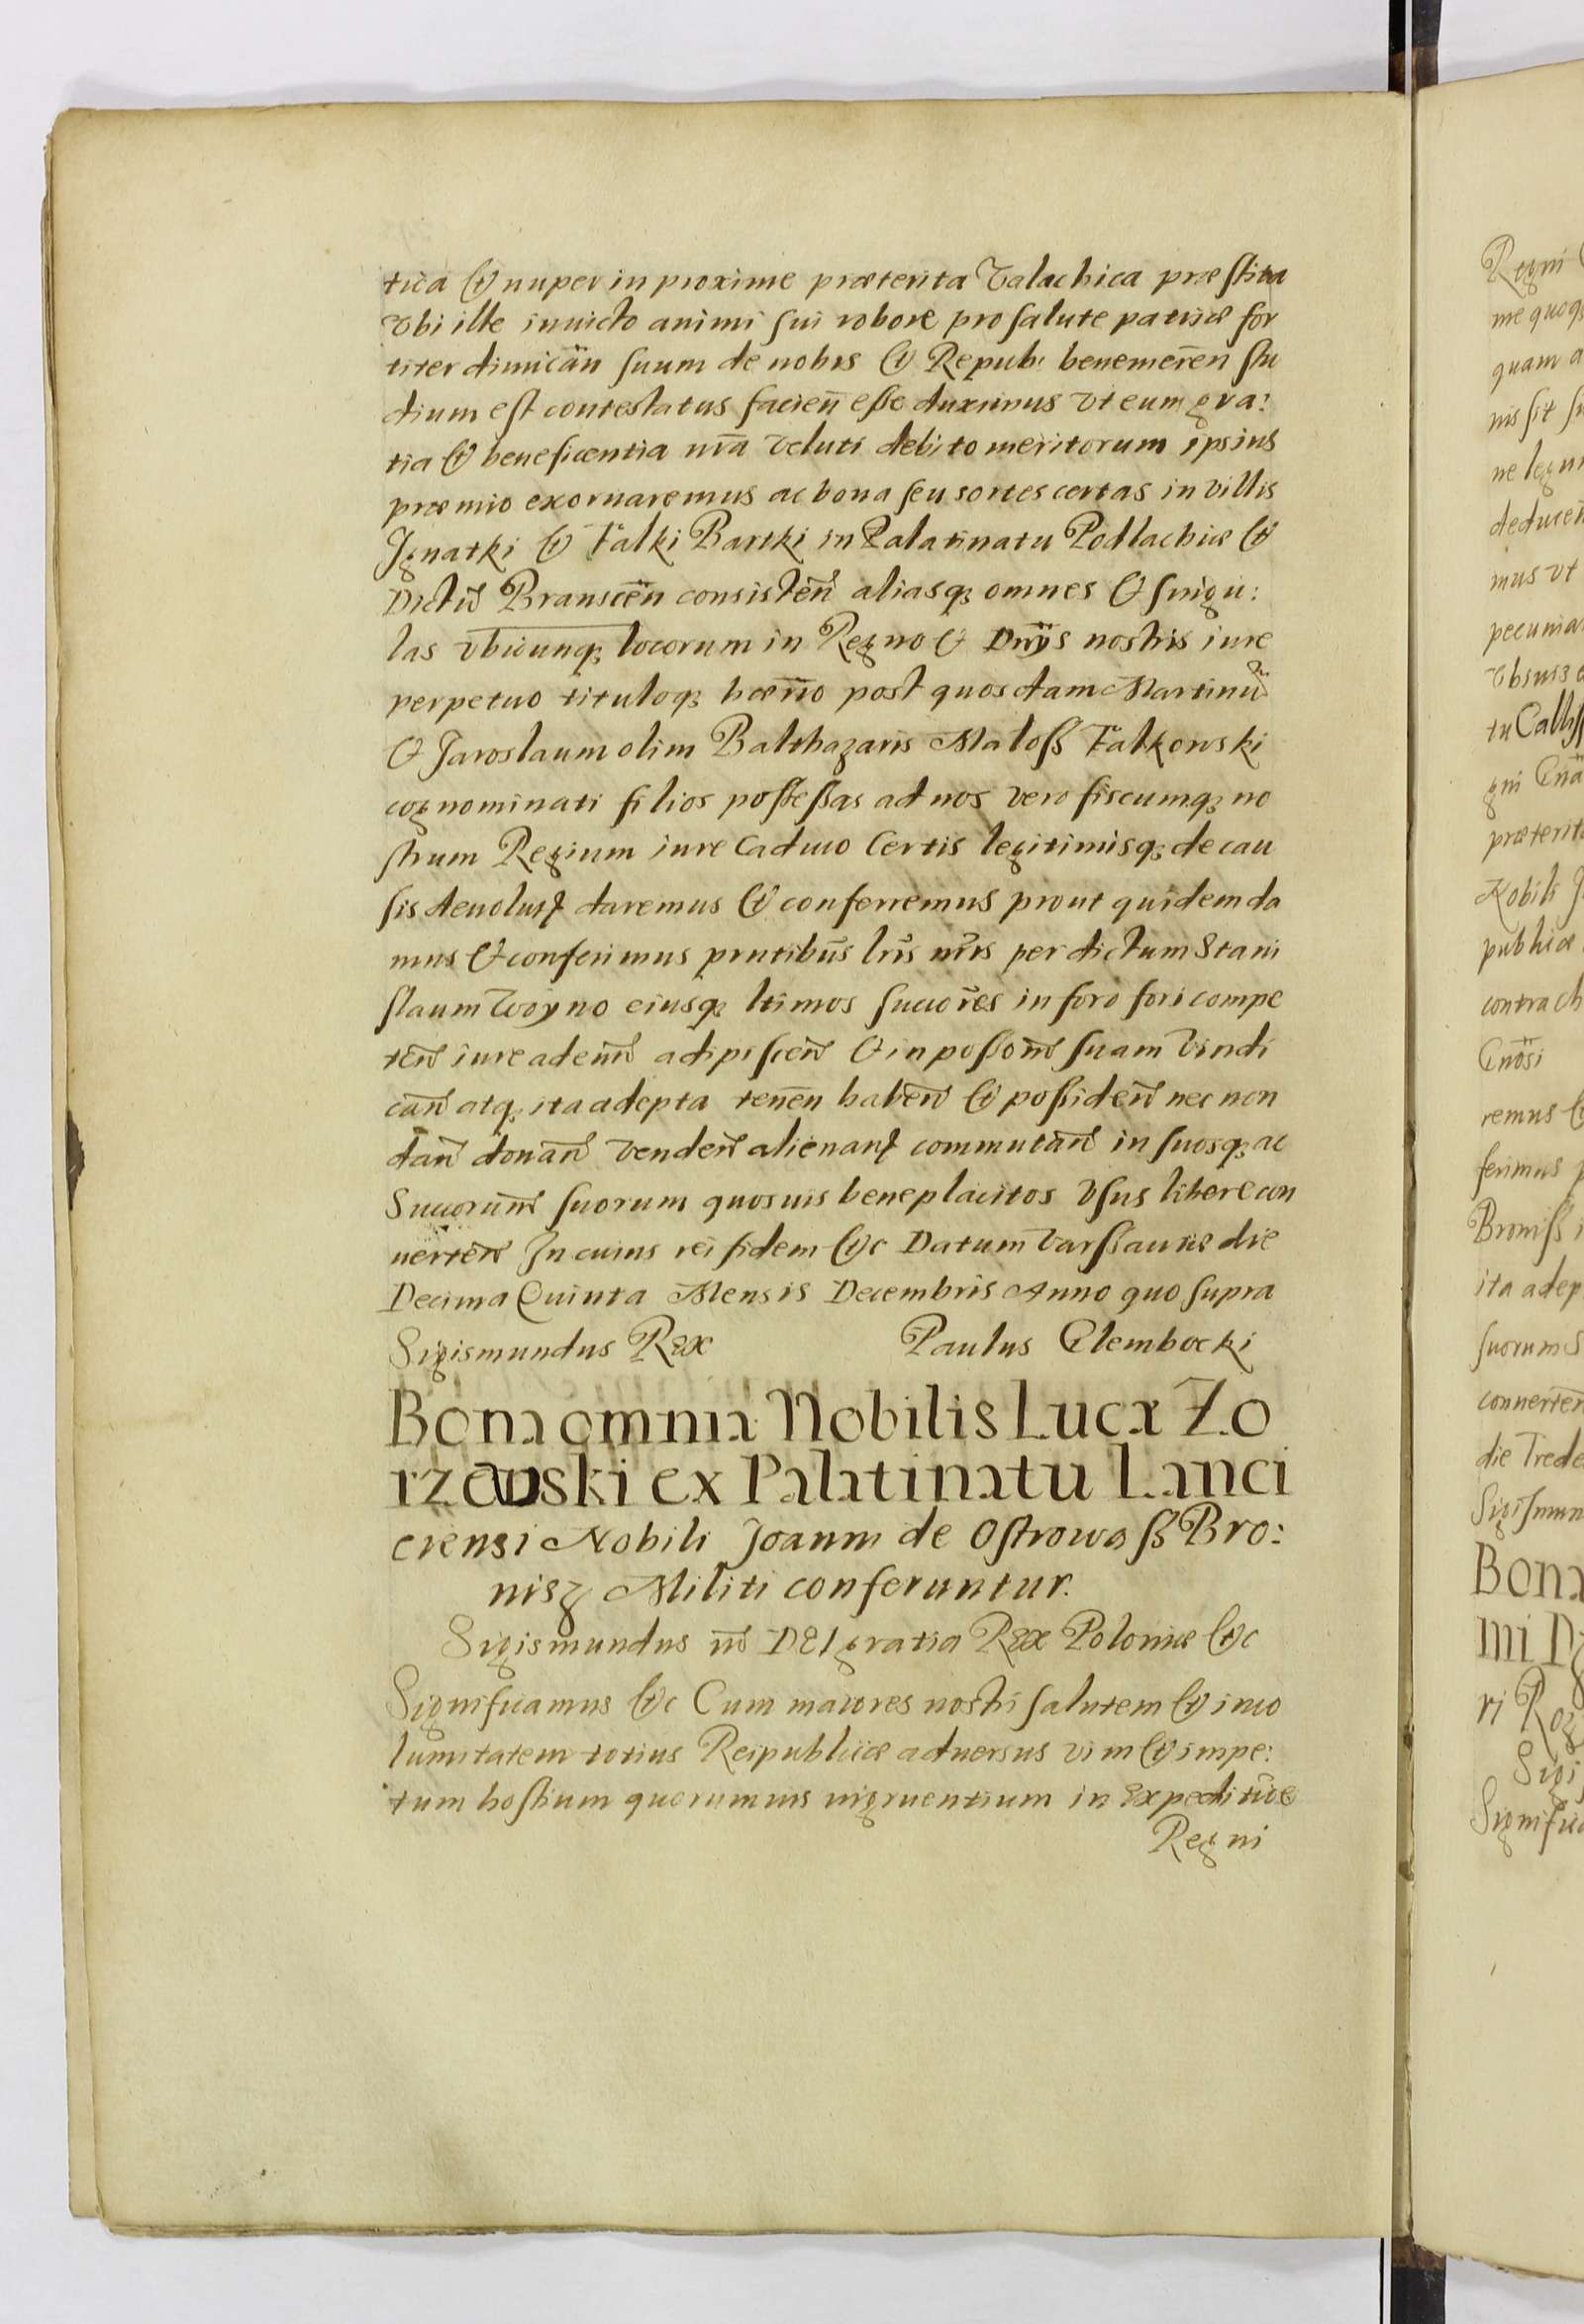 tica & nuper in proxime præterita Valachica præstita
Vbi ille inuicto animi sui robore pro salute patriæ for
titer dimicān suum de nobis & Repub: benemerēn stu
dium est contestatus facieñ esse duximus vt eum gra:
tia & beneficentia nrā veluti debito meritorum ipsius
præmio exornaremus ac bona seu sortes certas in villis
Ignatki & Falki Bartki in Palatinatu Podlachiæ &
Distrū Branscēn consistēn aliasq3 omnes & singu:
las vbicunq3 locorum in Regno & Dnÿs nostris iure
perpetuo tituloq3 hærīo post quosdam Martinū
& Jaroslaum olim Balthazaris Maloss Falkowski
cognominati filios possessas ad nos vero fiscumq3 no
strum Regium iure Caduco Certis legitimisq3 de cau
sis deuolut daremus & conferremus prout quidem da
mus & conferimus pñtibus lris nris per dictum Stani
slaum Woyno eiusq3 ltimos succōres in foro fori compe
tēn iure adeun adipiscēn & in possonē suam vindi
cān atq3 ita adepta tenēn habēn & possidēn nec non
dān donān vendēn alienan commutān in suosq3 ac
Succorum suorum quosuis beneplacitos vsus libere con
uertēn In cuius rei fidem &c Datum Varssauiæ die
Decima Quinta Mensis Decembris Anno quo supra
Sigismundus Rex Paulus Glembocki
Bona omnia Nobilis Lucæ Zo
rzewski ex Palatinatu Lanci
ciensi Nobili Joanni de Ostrowo ss Bro:
nisz Militi conferuntur.
Sigismundus iii DEI gratia Rex Poloniæ &c
Significamus &c Cum maiores nostri salutem & inco
lumitatem totius Reipublicæ aduersus vim & impe:
tum hostium quorumuis ingruentium in Expeditiōe
Regni